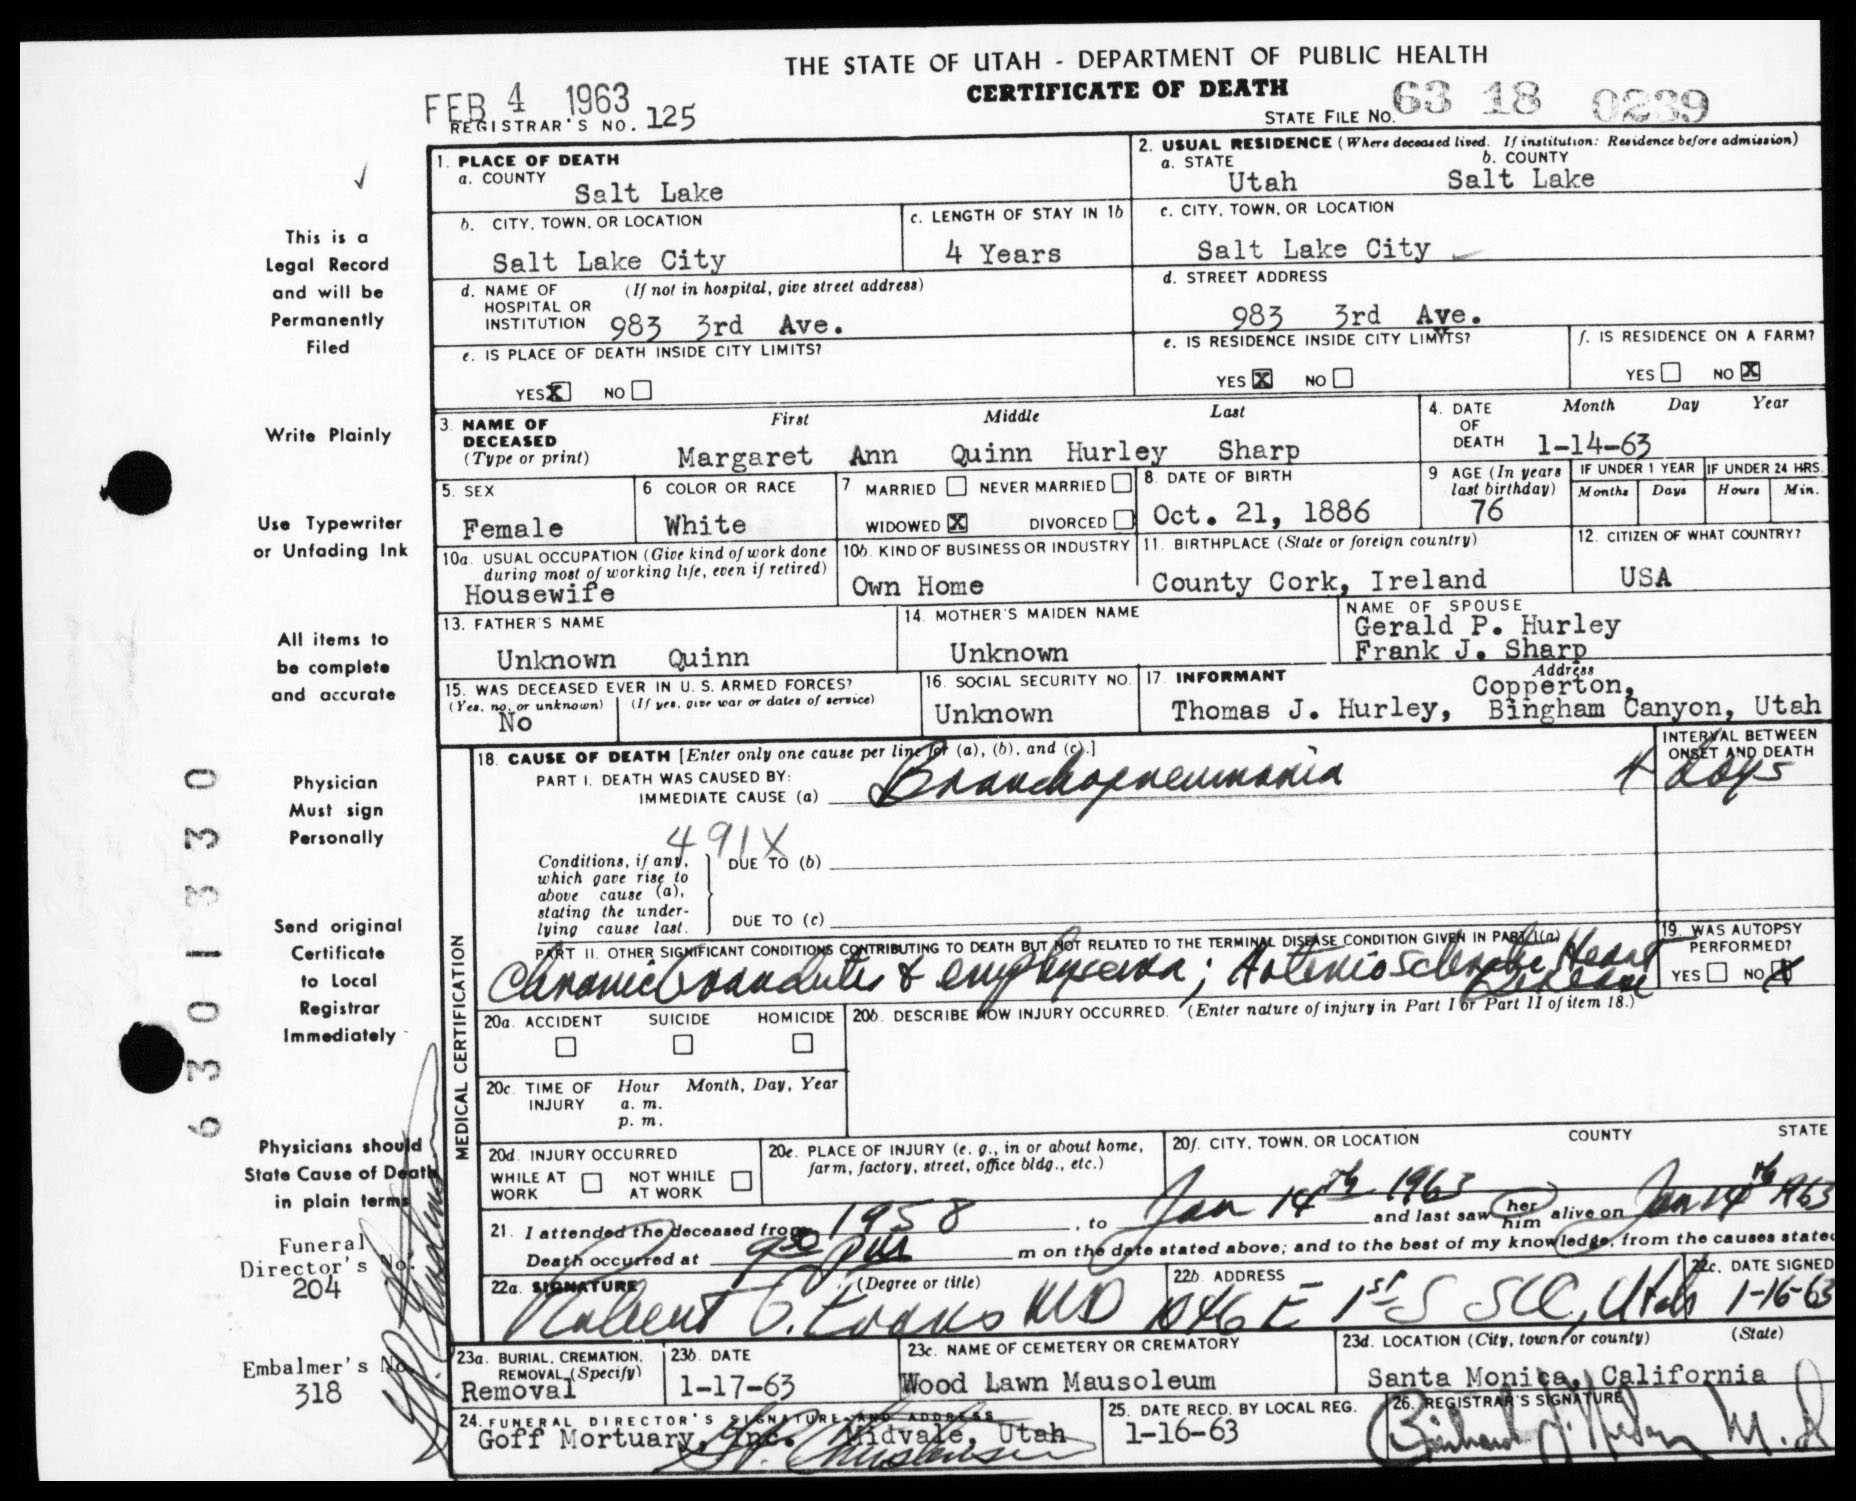 THE STATE OF UTAH - DEPARTMENT OF PUBLIC HEALTH
CERTIFICATE OF DEATH
FEB 4 1963
REGISTRAR'S NO. 125
STATE FILE NO. 63 18 0239
1. PLACE OF DEATH
a. COUNTY
Salt Lake
2. USUAL RESIDENCE (Where deceased lived. If institution: Residence before admission)
a. STATE b. COUNTY
Utah Salt Lake
b. CITY, TOWN, OR LOCATION
Salt Lake City
c. LENGTH OF STAY IN 1b
4 Years
c. CITY, TOWN, OR LOCATION
Salt Lake City
d. NAME OF (If not in hospital, give street address)
HOSPITAL OR
INSTITUTION 983 3rd Ave.
d. STREET ADDRESS
983 3rd Ave.
e. IS PLACE OF DEATH INSIDE CITY LIMITS?
YES X NO
e. IS RESIDENCE INSIDE CITY LIMITS?
YES X NO
f. IS RESIDENCE ON A FARM?
YES NO X
3. NAME OF
DECEASED
(Type or print)
First Middle Last
Margaret Ann Quinn Hurley Sharp
4. DATE
OF
DEATH
Month Day Year
1-14-63
5. SEX
Female
6 COLOR OR RACE
White
7. MARRIED NEVER MARRIED
WIDOWED X DIVORCED
8. DATE OF BIRTH
Oct. 21, 1886
9 AGE (In years
last birthday)
76
IF UNDER 1 YEAR
Months Days
IF UNDER 24 HRS.
Hours Min.
10a. USUAL OCCUPATION (Give kind of work done
during most of working life, even if retired)
Housewife
10b. KIND OF BUSINESS OR INDUSTRY
Own Home
11. BIRTHPLACE (State or foreign country)
County Cork, Ireland
12. CITIZEN OF WHAT COUNTRY?
USA
13. FATHER'S NAME
Unknown Quinn
14. MOTHER'S MAIDEN NAME
Unknown
NAME OF SPOUSE
Gerald P. Hurley
Frank J. Sharp
15. WAS DECEASED EVER IN U. S. ARMED FORCES?
(Yes, no, or unknown) (If yes, give war or dates of service)
No
16. SOCIAL SECURITY NO.
Unknown
17. INFORMANT Address
Copperton,
Thomas J. Hurley, Bingham Canyon, Utah
MEDICAL CERTIFICATION
18. CAUSE OF DEATH [Enter only one cause per line for (a), (b), and (c).]
PART I. DEATH WAS CAUSED BY:
IMMEDIATE CAUSE (a) Bronchopneumonia
INTERVAL BETWEEN
ONSET AND DEATH
4 days
491X
Conditions, if any,
which gave rise to
above cause (a),
stating the under-
lying cause last.
DUE TO (b)
DUE TO (c)
PART II. OTHER SIGNIFICANT CONDITIONS CONTRIBUTING TO DEATH BUT NOT RELATED TO THE TERMINAL DISEASE CONDITION GIVEN IN PART I(a)
Chronic Bronchitis & emphysema; Arteriosclerotic Heart
Disease
19. WAS AUTOPSY
PERFORMED?
YES NO X
20a. ACCIDENT SUICIDE HOMICIDE
20b. DESCRIBE HOW INJURY OCCURRED. (Enter nature of injury in Part I or Part II of item 18.)
20c. TIME OF Hour Month, Day, Year
INJURY a. m.
p. m.
20d. INJURY OCCURRED
WHILE AT WORK NOT WHILE AT WORK
20e. PLACE OF INJURY (e. g., in or about home,
farm, factory, street, office bldg., etc.)
20f. CITY, TOWN, OR LOCATION COUNTY STATE
21. I attended the deceased from 1958, to Jan 14th 1963 and last saw her him alive on Jan 14th 1963
Death occurred at 9 30 PM m on the date stated above; and to the best of my knowledge, from the causes stated
22a. SIGNATURE (Degree or title)
Robert O. Evans MD
22b. ADDRESS
1046 E 1st S SLC, Utah
22c. DATE SIGNED
1-16-63
23a. BURIAL, CREMATION,
REMOVAL (Specify)
Removal
23b. DATE
1-17-63
23c. NAME OF CEMETERY OR CREMATORY
Wood Lawn Mausoleum
23d. LOCATION (City, town, or county) (State)
Santa Monica, California
24. FUNERAL DIRECTOR'S SIGNATURE AND ADDRESS
Goff Mortuary, Inc. Midvale, Utah
25. DATE RECD. BY LOCAL REG.
1-16-63
26. REGISTRAR'S SIGNATURE
This is a
Legal Record
and will be
Permanently
Filed
Write Plainly
Use Typewriter
or Unfading Ink
All items to
be complete
and accurate
Physician
Must sign
Personally
Send original
Certificate
to Local
Registrar
Immediately
Physicians should
State Cause of Death
in plain terms
Funeral
Director's No.
204
Embalmer's No.
318
6301330